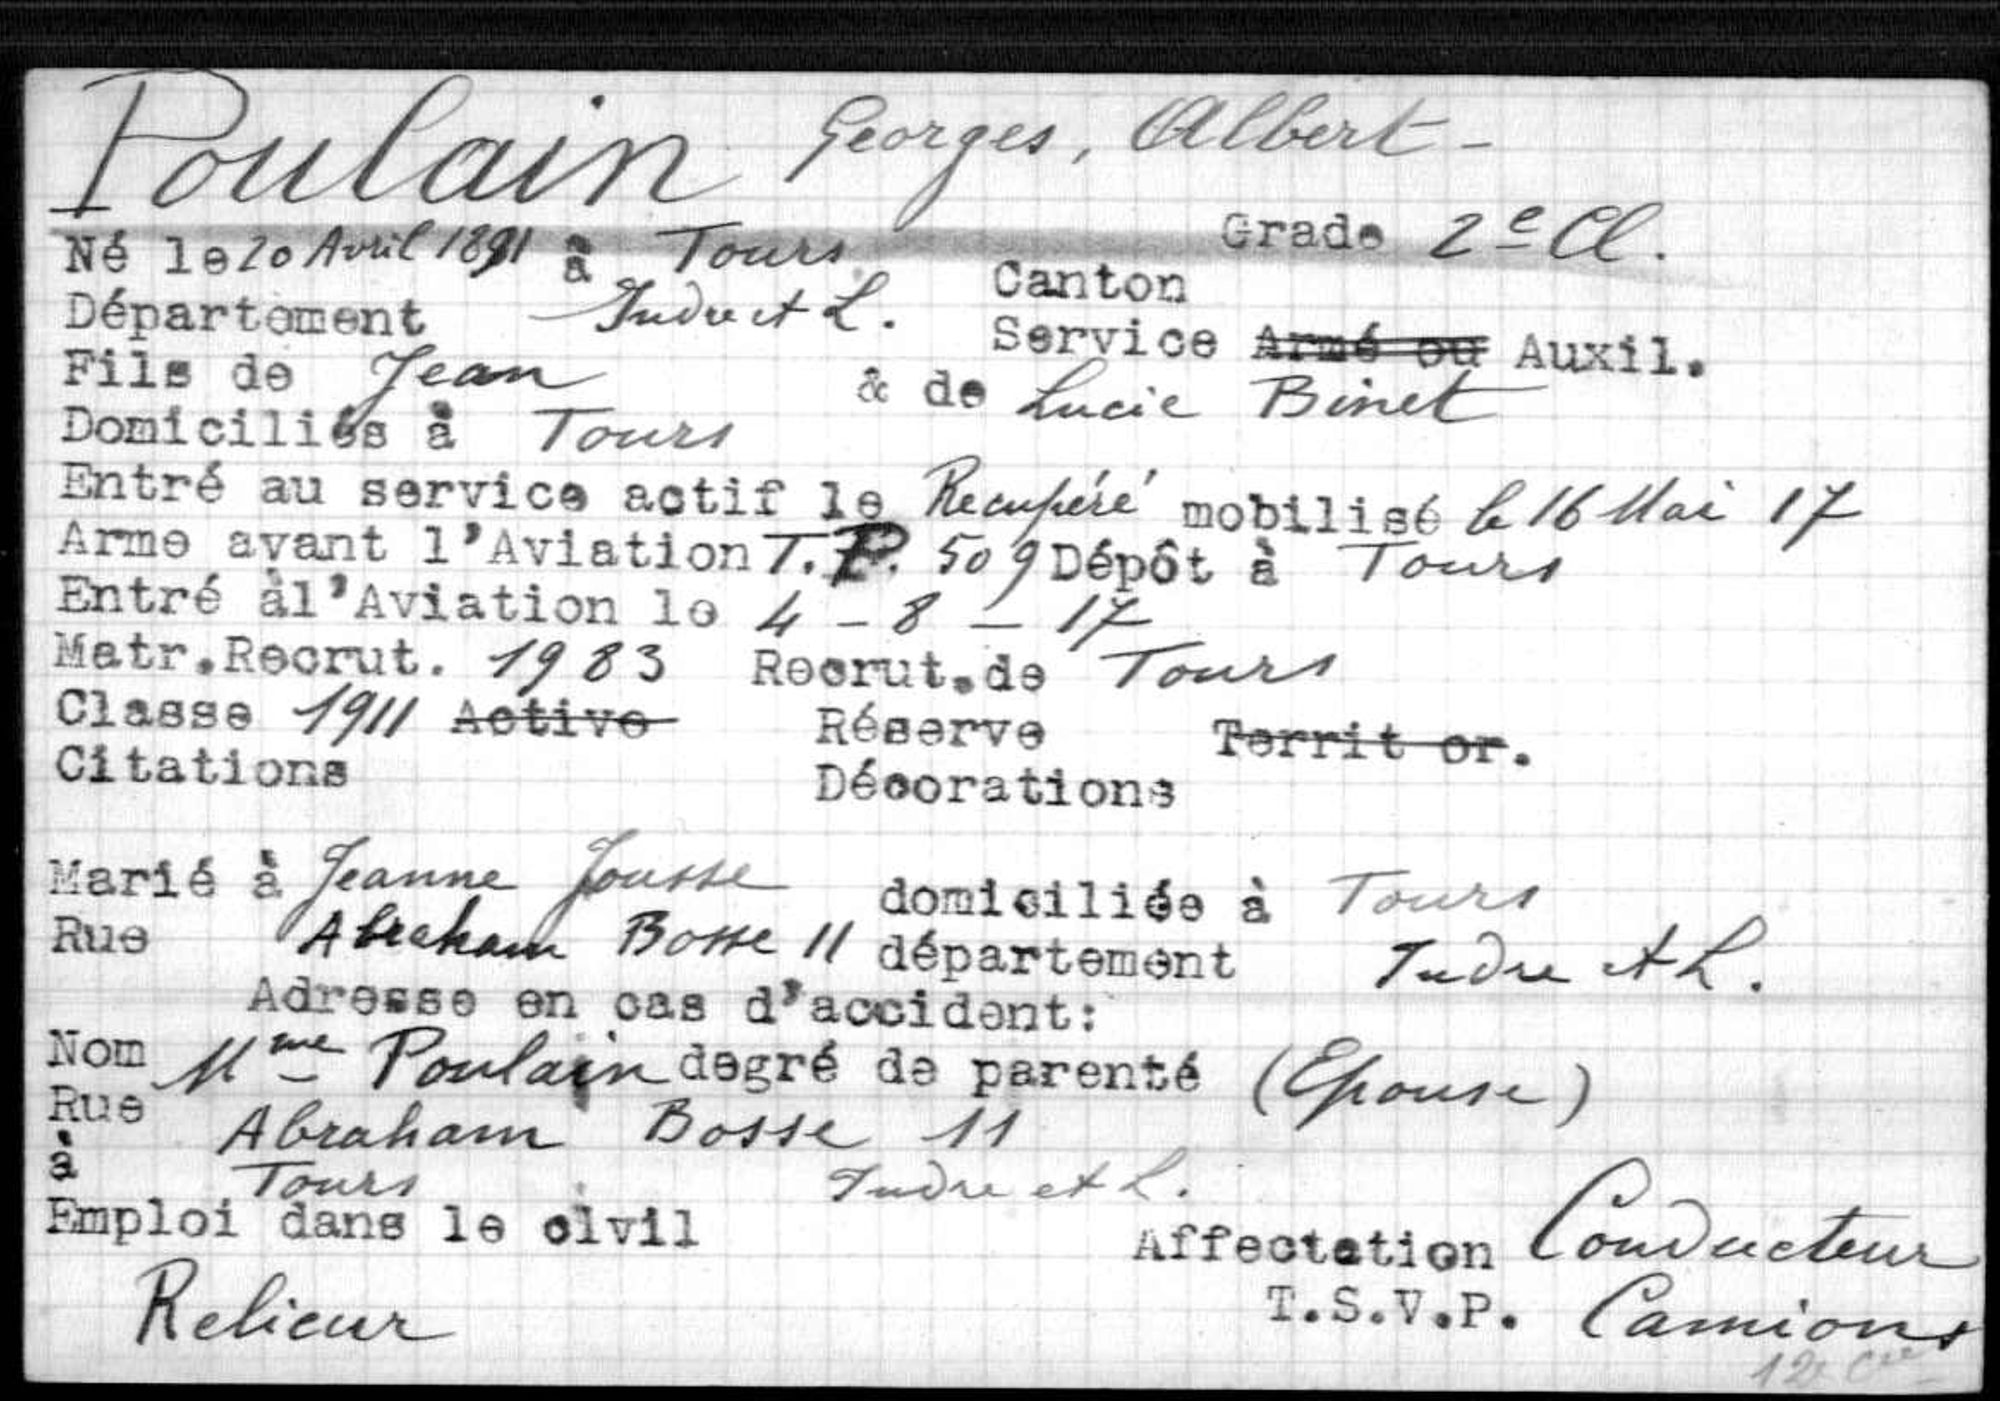 Poulain Georges, Albert -
Grade 2e Cl.
Né le 20 Avril 1891 à Tours
Canton
Département Indre et L.
Service Armé ou Auxil.
Fils de Jean & de Lucie Binet
Domiciliés à Tours
Entré au service actif le Recupéré mobilisé le 16 Mai 17
Arme avant l'Aviation T.P. 509 Dépôt à Tours
Entré àl'Aviation le 4 - 8 - 17
Matr.Recrut. 1983 Recrut.de Tours
Classe 1911 Active Réserve Territ or.
Citations Décorations
Marié à Jeanne Jousse domiciliée à Tours
Rue Abraham Bosse 11 département Indre et L.
Adresse en cas d'accident:
Nom Mme Poulain degré de parenté (Epouse)
Rue Abraham Bosse 11
à Tours Indre et L.
Emploi dans le civil
Affectation Conducteur
Relieur
T.S.V.P. Camions
12e Cie